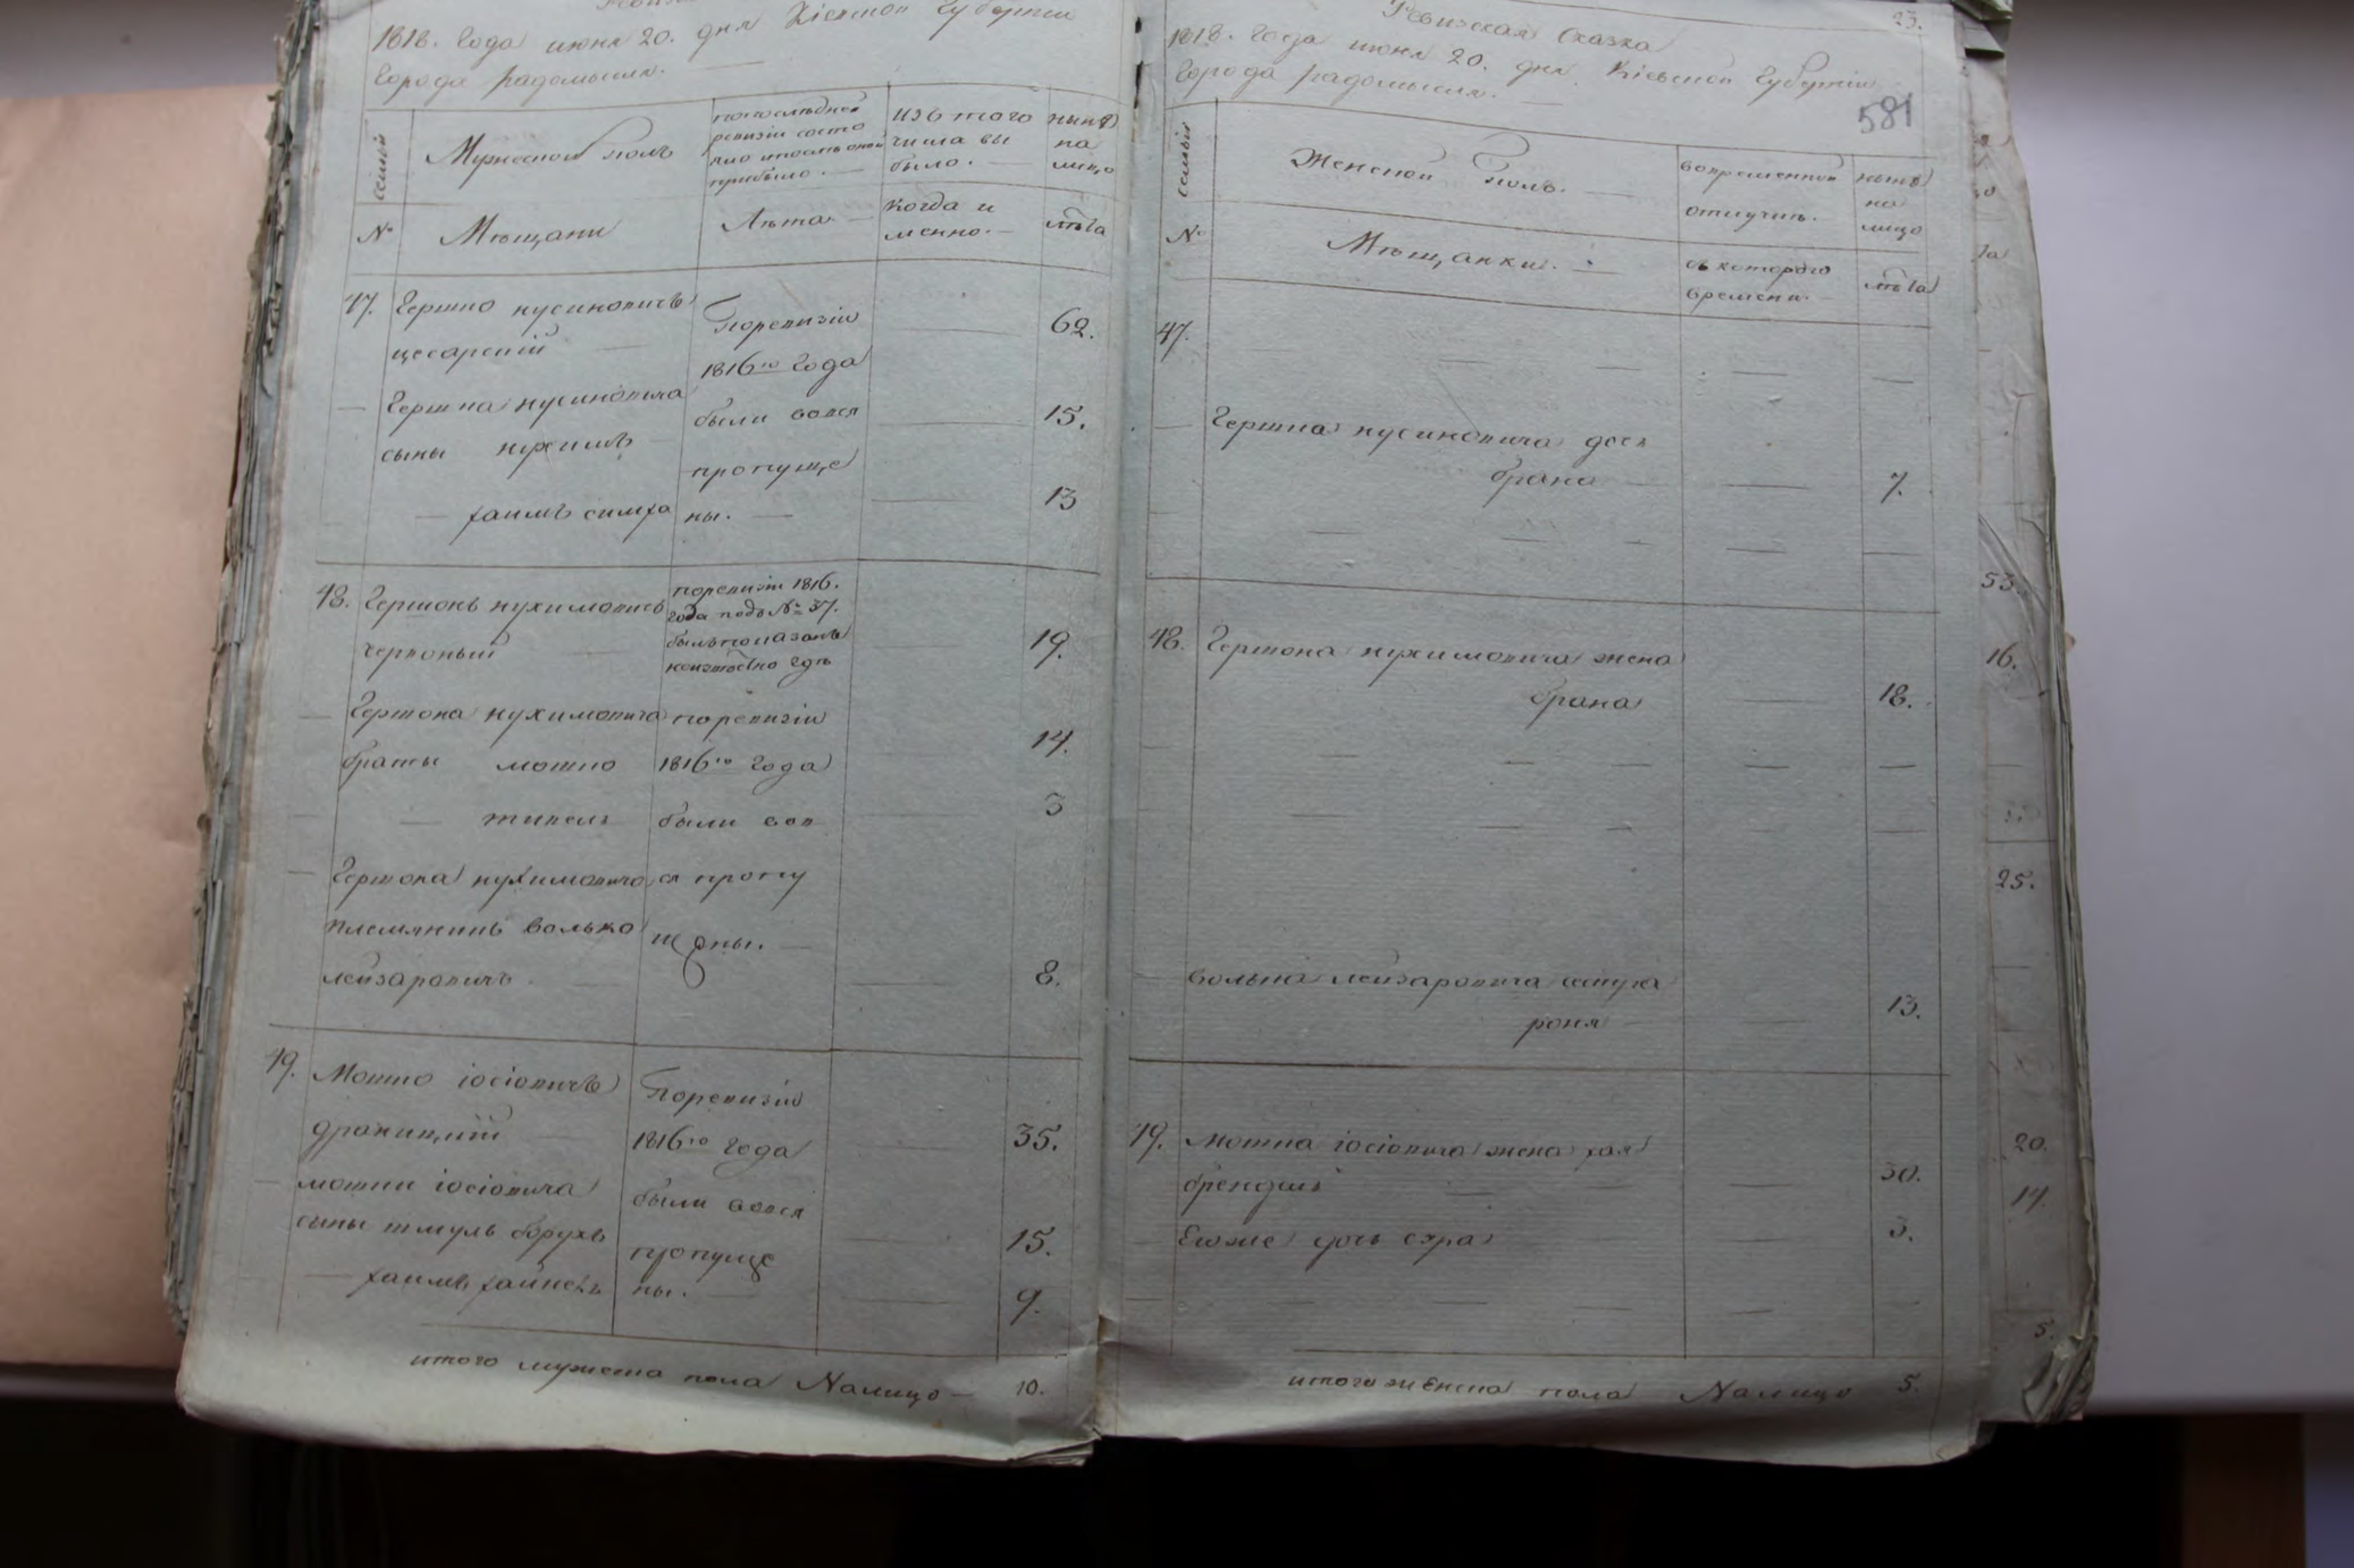 1818. Года июня 20. дня Кіевской Губерніи
Города Радомысля.
Семьи
Мужеской полъ
по последней
ревизіи состо
яло и после оной
прибыло.
изъ того
числа вы
было.
ныне
на
лицо
№
Мещани
Лѣта
когда и
менно.
лѣта
47. Гершко нусиновичъ
цесарскій
Поревизіи
1816го года
были вовся
пропуще
ны.
62.
Гершка нусиновича
сыны нухимъ
15.
хаимъ симха
13
48. Гершонъ нухимовичъ
червоный
поревизіи 1816.
года подъ № 37.
былъ показанъ
неизвестно где
19.
Гершона нухимовича
браты мошко
поревизіи
1816го года
14.
были вов
3
Гершона нухимовича
ся пропу
племянникъ волько
щены.
лейзаровичъ
8.
49. Мошко іосіовичъ
Поревизіи
1816го года
35.
мошки іосіовича
были вовся
сыны шмуль борухъ
пропуще
15.
ны.
9.
итого мужеска пола Налицо 10.
Ревизская Сказка
23.
1818. Года июня 20. дня Кіевской Губерніи
Города Радомысля.
581
Семьи
Женской Полъ.
вовременной
отлучке.
ныне
на
лицо
№
Мещанки.
съ которого
времени.
лѣта
47.
Гершка нусиновича дочь
брана
7.
48. Гершона нухимовича жена
брана
18.
волька лейзаровича сестра
роня
13.
49. Мошка іосіовича жена хая
30.
Егоже дочь сура
3.
итого женска пола Налицо 5.
53.
16.
25.
20.
14.
5.